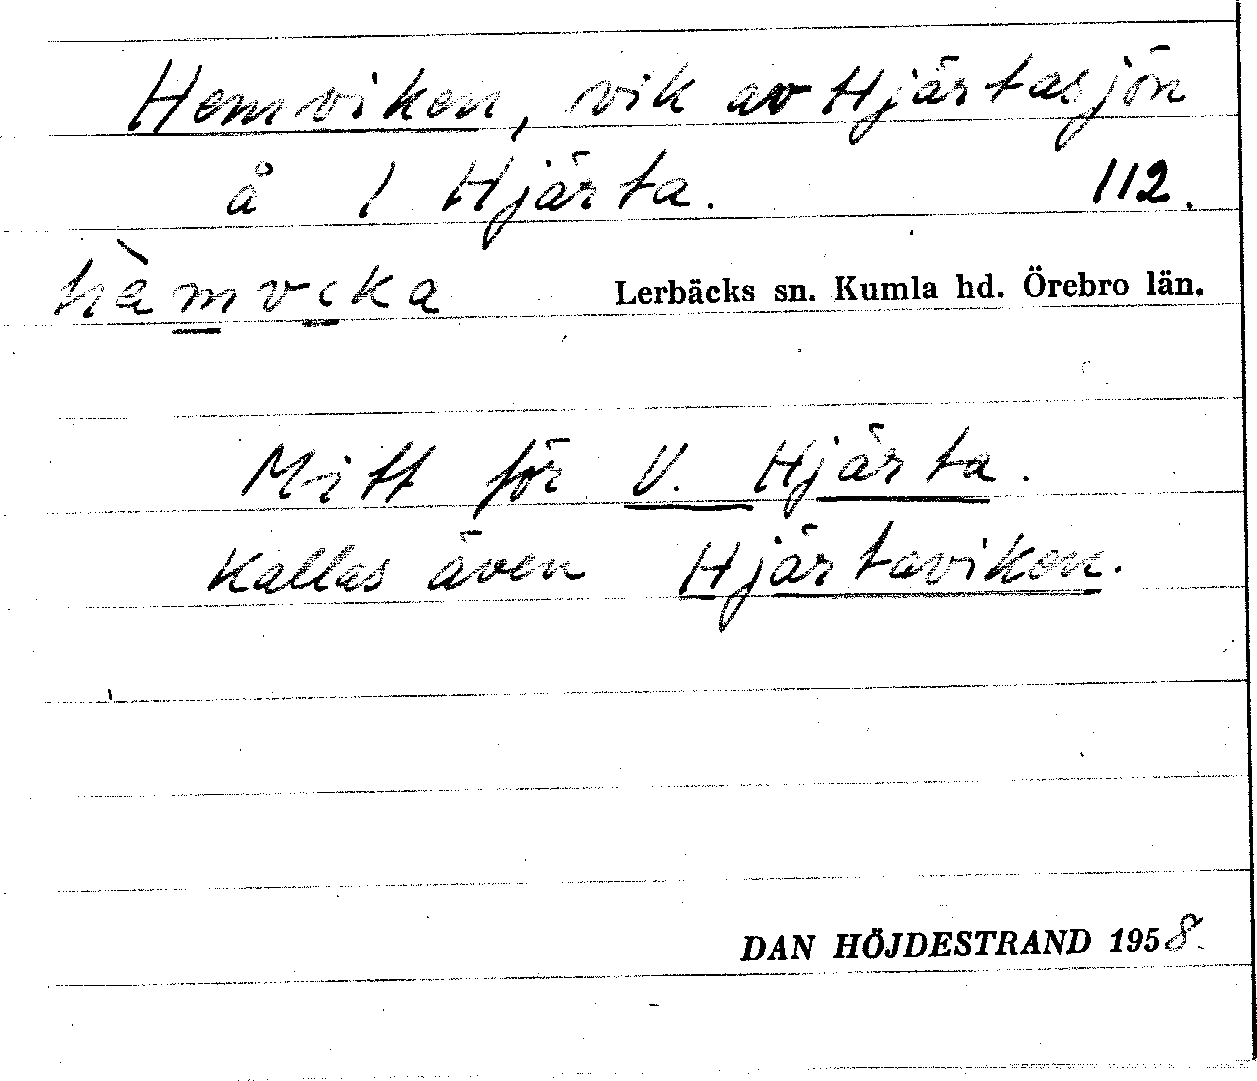 Hemviken, vik av Hjärtasjön
å 1 Hjärta. 112.
hèmvıka Lerbäcks sn. Kumla hd. Örebro län.
Mitt för V. Hjärta.
Kallas även Hjärtaviken.
DAN HÖJDESTRAND 1958.